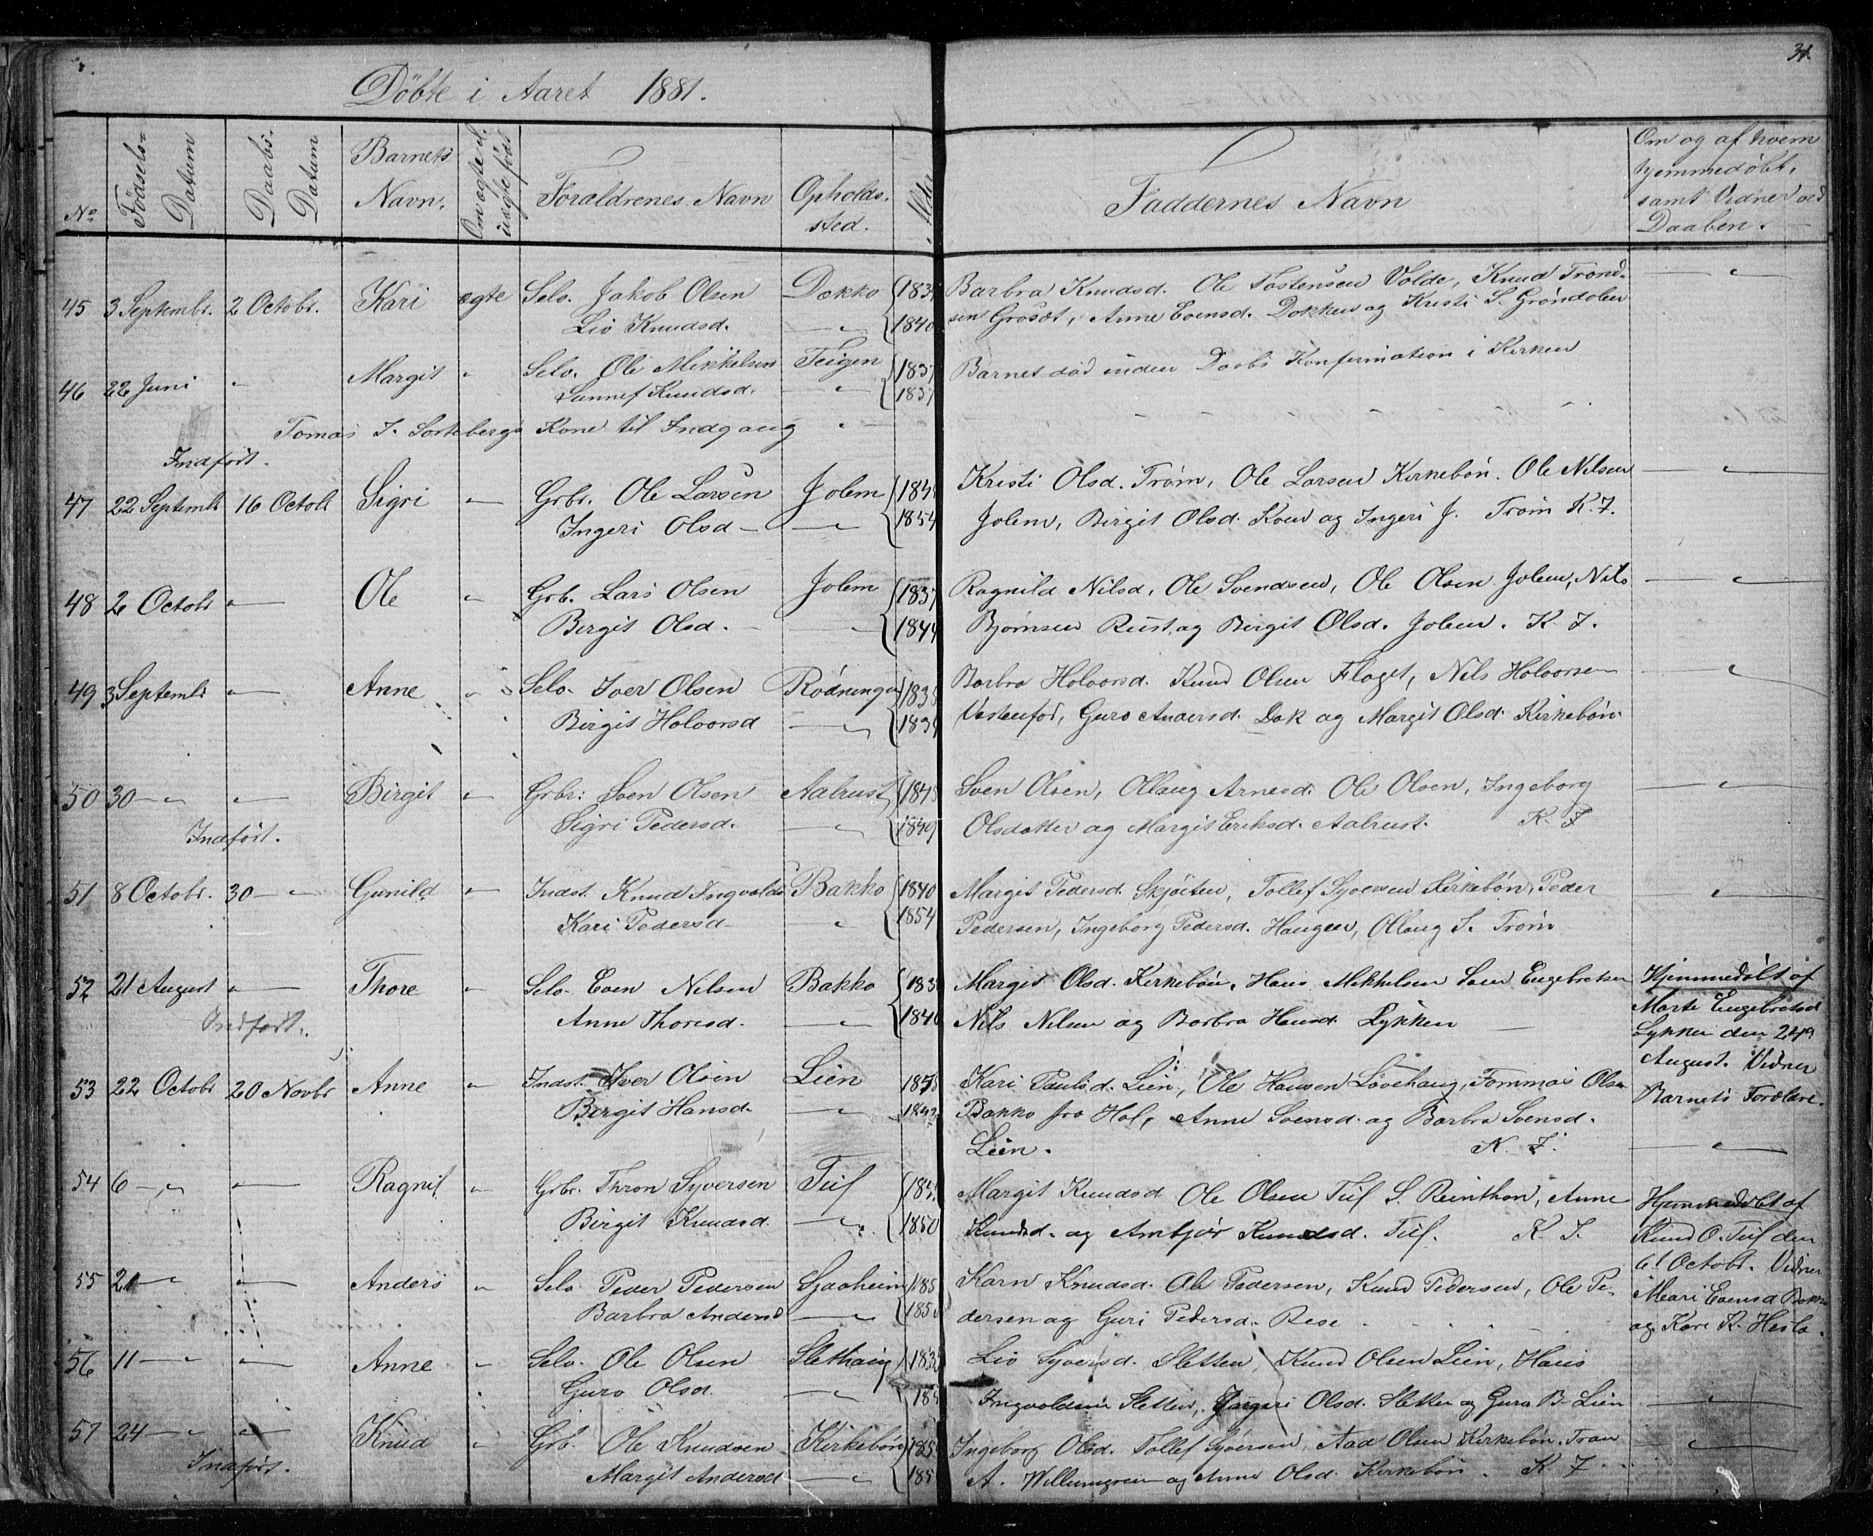 31.
Döbte i Aaret 1881.
No
Födsels-Datum
Daabs-Datum
Barnets Navn.
Om ægte el. uægte född
Forældrenes Navn
Opholds-sted.
Faddernes Navn
Om og af hvem hjemmedøbt, samt Vidner ved Daaben.
45 3 Septembr. 2 Octobr. Kari ægte Selv. Jakob Olsen Dokko Barbra Knudsd. Ole Tostensen Volde, Knud Trond-
Liv Knudsd. 1840 sen Grosæt, Anne Evensd. Dokken og Kristi S. Gröndalen
46 22 Juni Margit Selv. Ole Mikkelsen Teigen 1837 Barnet död inden Daabs Konfirmation i Kirken
Sunnef Knudsd. 1837
Tomas T. Sorteberg Kone til Indgang
Indført.
47 22 Septembr 16 Octobr Sigri Grbr. Ole Larsen Jolem Kristi Olsd. Tröm, Ole Larsen Kirkebön. Ole Nilsen
Ingeri Olsd 1854 Jolem, Birgit Olsd. og Ingeri J. Tröm K. J.
48 2 Octobr Ole Grb. Lars Olsen Jolem 1837 Ragnild Nilsd, Ole Svendsen, Ole Olsen Jolem, Nils
Birgit Olsd. 1844 Björnsen Rust, og Birgit Olsd. Jolem. K. J.
49 3 Septembr Anne Selv. Iver Olsen Rödningen 1838 Barbra Holvorsd. Knud Olsen Flaget, Nils Holvorsen
Birgit Holvorsd 1839 Guro Andersd. Dok og Margit Olsd. Kirkebön.
50 30 Birgit Grbr. Sven Olsen Aalrust 1848 Sven Olsen, Ollaug Arnesd. Ole Olsen, Ingeborg
Sigri Pedersd. 1849 Olsdatter og Margit Eriksd. Aalrust. K. J
Indført.
51 8 Octobr. 30 Gunild Indst. Knud Ingvolds Bakko 1840 Margit Pedersd. Skjörten, Tollef Syversen Kirkebön, Peder
Kari Pedersd 1854 Pedersen, Ingeborg Pedersd. Haugen, Ollaug S. Tröm
52 21 August Thore Selv. Even Nilsen Bakko Margit Olsd. Kirkebön, Hans Mikkelsen Sven Engebretsen Hjemmedøbt af
Indført. Anne Thoresd. 1840 Nils Nilsen og Barbra Hansd. Lykken Marte Engebretsd
Lykken den 24de
August. Vidner
53 22 Octobr 20 Novbr Anne Indst. Iver Olsen Lien Kari Paulsd. Lien, Ole Hansen Lövehaug, Tommas Olsen Barnets Forældre.
Birgit Hansd. Bakko fra Hol, Anne Svensd. og Barbra Svensd.
Lien. K. J.
54 6 Ragnil Grbr. Thron Syversen Tuf Margit Knudsd Ole Olsen Tuf S. Reinthon, Anne Hjemmedøbt af
Birgit Knudsd. 1850 Knudsd. og Ambjör Knudsd. Tuf. K. J. Knud O. Tuf den
6te Octobr. Vidner
55 21 Anders Selv. Peder Pedersen Sjaaheim 185 Karn Knudsd. Ole Pedersen, Knud Pedersen, Ole Pe- Mari Evensd Bakko
Barbra Andersd 185 dersen og Guri Pedersd. Rese og Kari K. Hesla.
56 11 Anne Selv. Ole Olsen Slethaug 183 Liv Syversd. Sletten, Knud Olsen Lien, Hans
Guro Olsd. 18 Ingvoldsen Sletten, Ingeri Olsd. Sletten og Guro B. Lien
57 24 Knud Grb. Ole Knudsen Kirkebön 185 Ingeborg Olsd. Tollef Syversen, Aad Olsen Kirkebön.
Indført. Margit Andersd 185 A. Willumgren og Anne Olsd. Kirkebön. K J